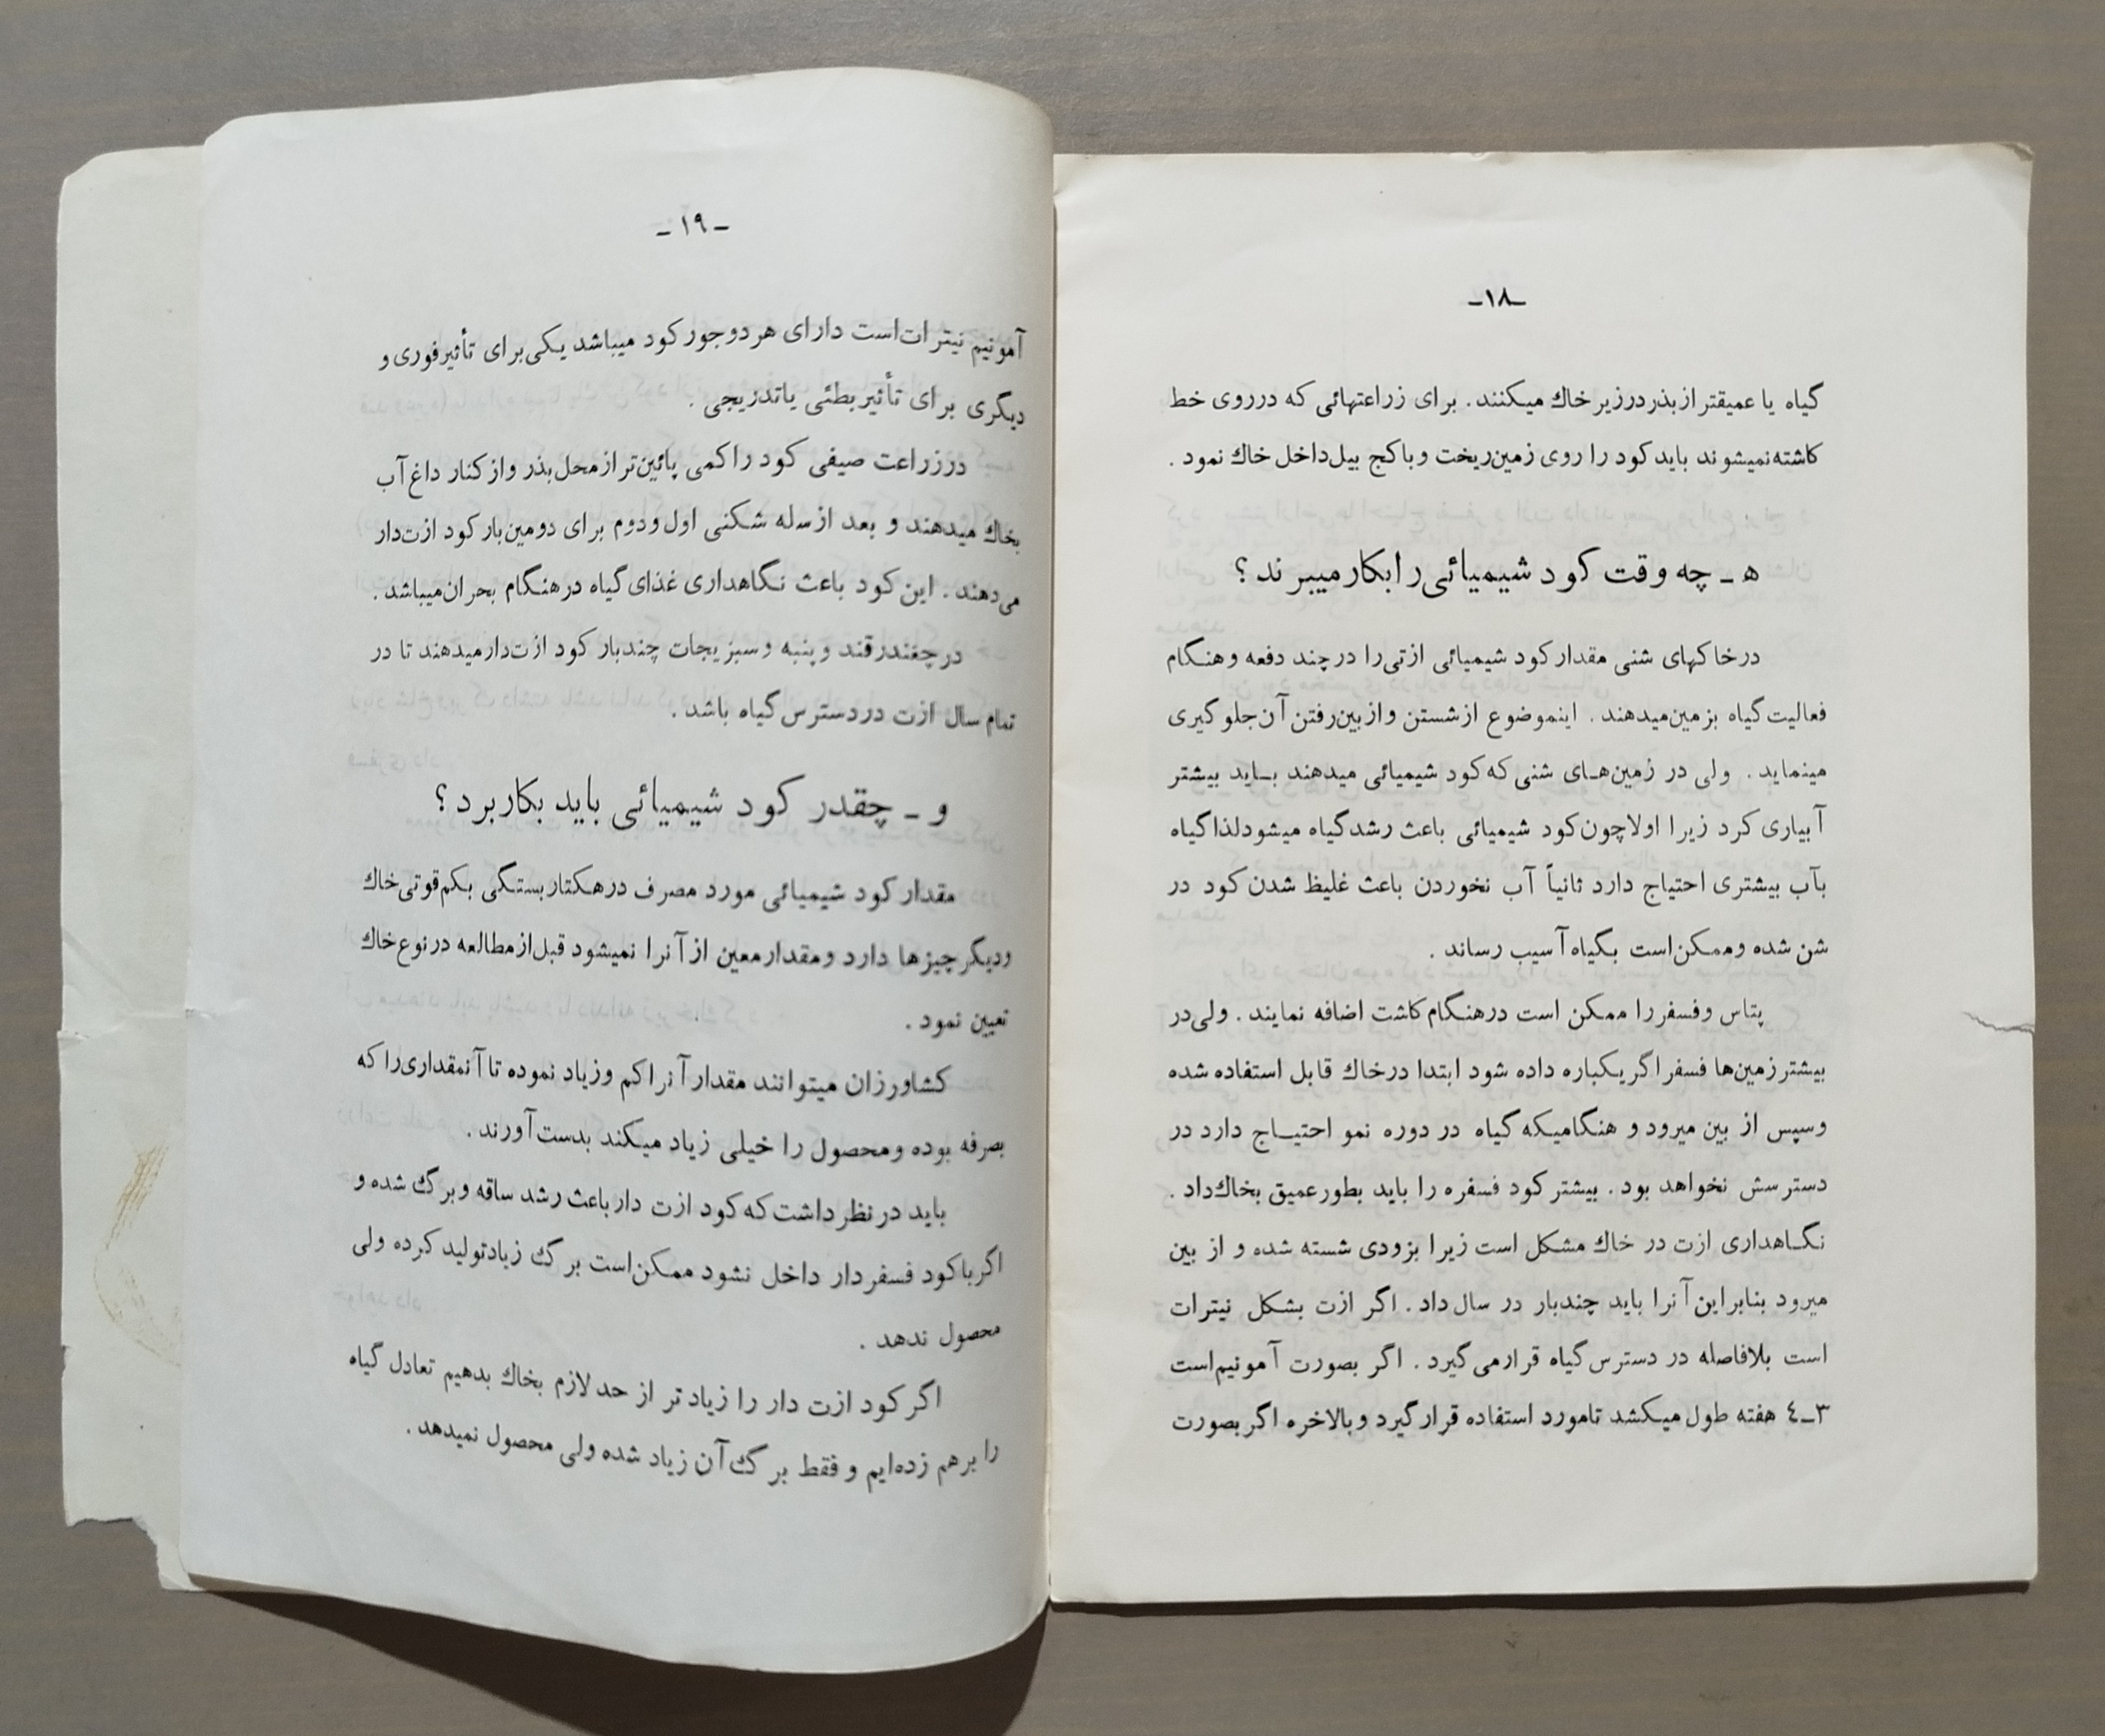 -۱۸-
گیاه یا عمیقتر از بذر در زیر خاك میکنند. برای زراعتهائی که در روی خط
کاشته نمیشوند باید کود را روی زمین ریخت و با کج بیل داخل خاك نمود.
ه ـ چه وقت کود شیمیائی را بکار میبرند؟
در خاکهای شنی مقدار کود شیمیائی ازتی را در چند دفعه و هنگام
فعالیت گیاه بزمین میدهند. اینموضوع از شستن و از بین رفتن آن جلوگیری
مینماید. ولی در زمین‌های شنی که کود شیمیائی میدهند باید بیشتر
آبیاری کرد زیرا اولا چون کود شیمیائی باعث رشد گیاه میشود لذا گیاه
بآب بیشتری احتیاج دارد ثانیاً آب نخوردن باعث غلیظ شدن کود در
شن شده و ممکن است بگیاه آسیب رساند.
پتاس و فسفر را ممکن است در هنگام کاشت اضافه نمایند. ولی در
بیشتر زمین‌ها فسفر اگر یکباره داده شود ابتدا در خاك قابل استفاده شده
و سپس از بین میرود و هنگامیکه گیاه در دوره نمو احتیاج دارد در
دسترسش نخواهد بود. بیشتر کود فسفره را باید بطور عمیق بخاك داد.
نگاهداری ازت در خاك مشکل است زیرا بزودی شسته شده و از بین
میرود بنابراین آنرا باید چندبار در سال داد. اگر ازت بشکل نیترات
است بلافاصله در دسترس گیاه قرار می گیرد. اگر بصورت آمونیم است
۳ـ٤ هفته طول میکشد تا مورد استفاده قرار گیرد و بالاخره اگر بصورت
-۱۹-
آمونیم نیترات است دارای هر دو جور کود میباشد یکی برای تأثیر فوری و
دیگری برای تأثیر بطئی یا تدریجی.
در زراعت صیفی کود را کمی پائین‌تر از محل بذر و از کنار داغ آب
بخاك میدهند و بعد از سله شکنی اول و دوم برای دومین بار کود ازت‌دار
می‌دهند. این کود باعث نگاهداری غذای گیاه در هنگام بحران میباشد.
در چغندرقند و پنبه و سبزیجات چندبار کود ازت‌دار میدهند تا در
تمام سال ازت در دسترس گیاه باشد.
و ـ چقدر کود شیمیائی باید بکار برد؟
مقدار کود شیمیائی مورد مصرف در هکتار بستگی بکم قوتی خاك
و دیگر چیزها دارد و مقدار معین از آنرا نمیشود قبل از مطالعه در نوع خاك
تعیین نمود.
کشاورزان میتوانند مقدار آنرا کم و زیاد نموده تا آنمقداری را که
بصرفه بوده و محصول را خیلی زیاد میکند بدست آورند.
باید در نظر داشت که کود ازت دار باعث رشد ساقه و برگ شده و
اگر با کود فسفردار داخل نشود ممکن است برگ زیاد تولید کرده ولی
محصول ندهد.
اگر کود ازت دار را زیادتر از حد لازم بخاك بدهیم تعادل گیاه
را برهم زده‌ایم و فقط برگ آن زیاد شده ولی محصول نمیدهد.